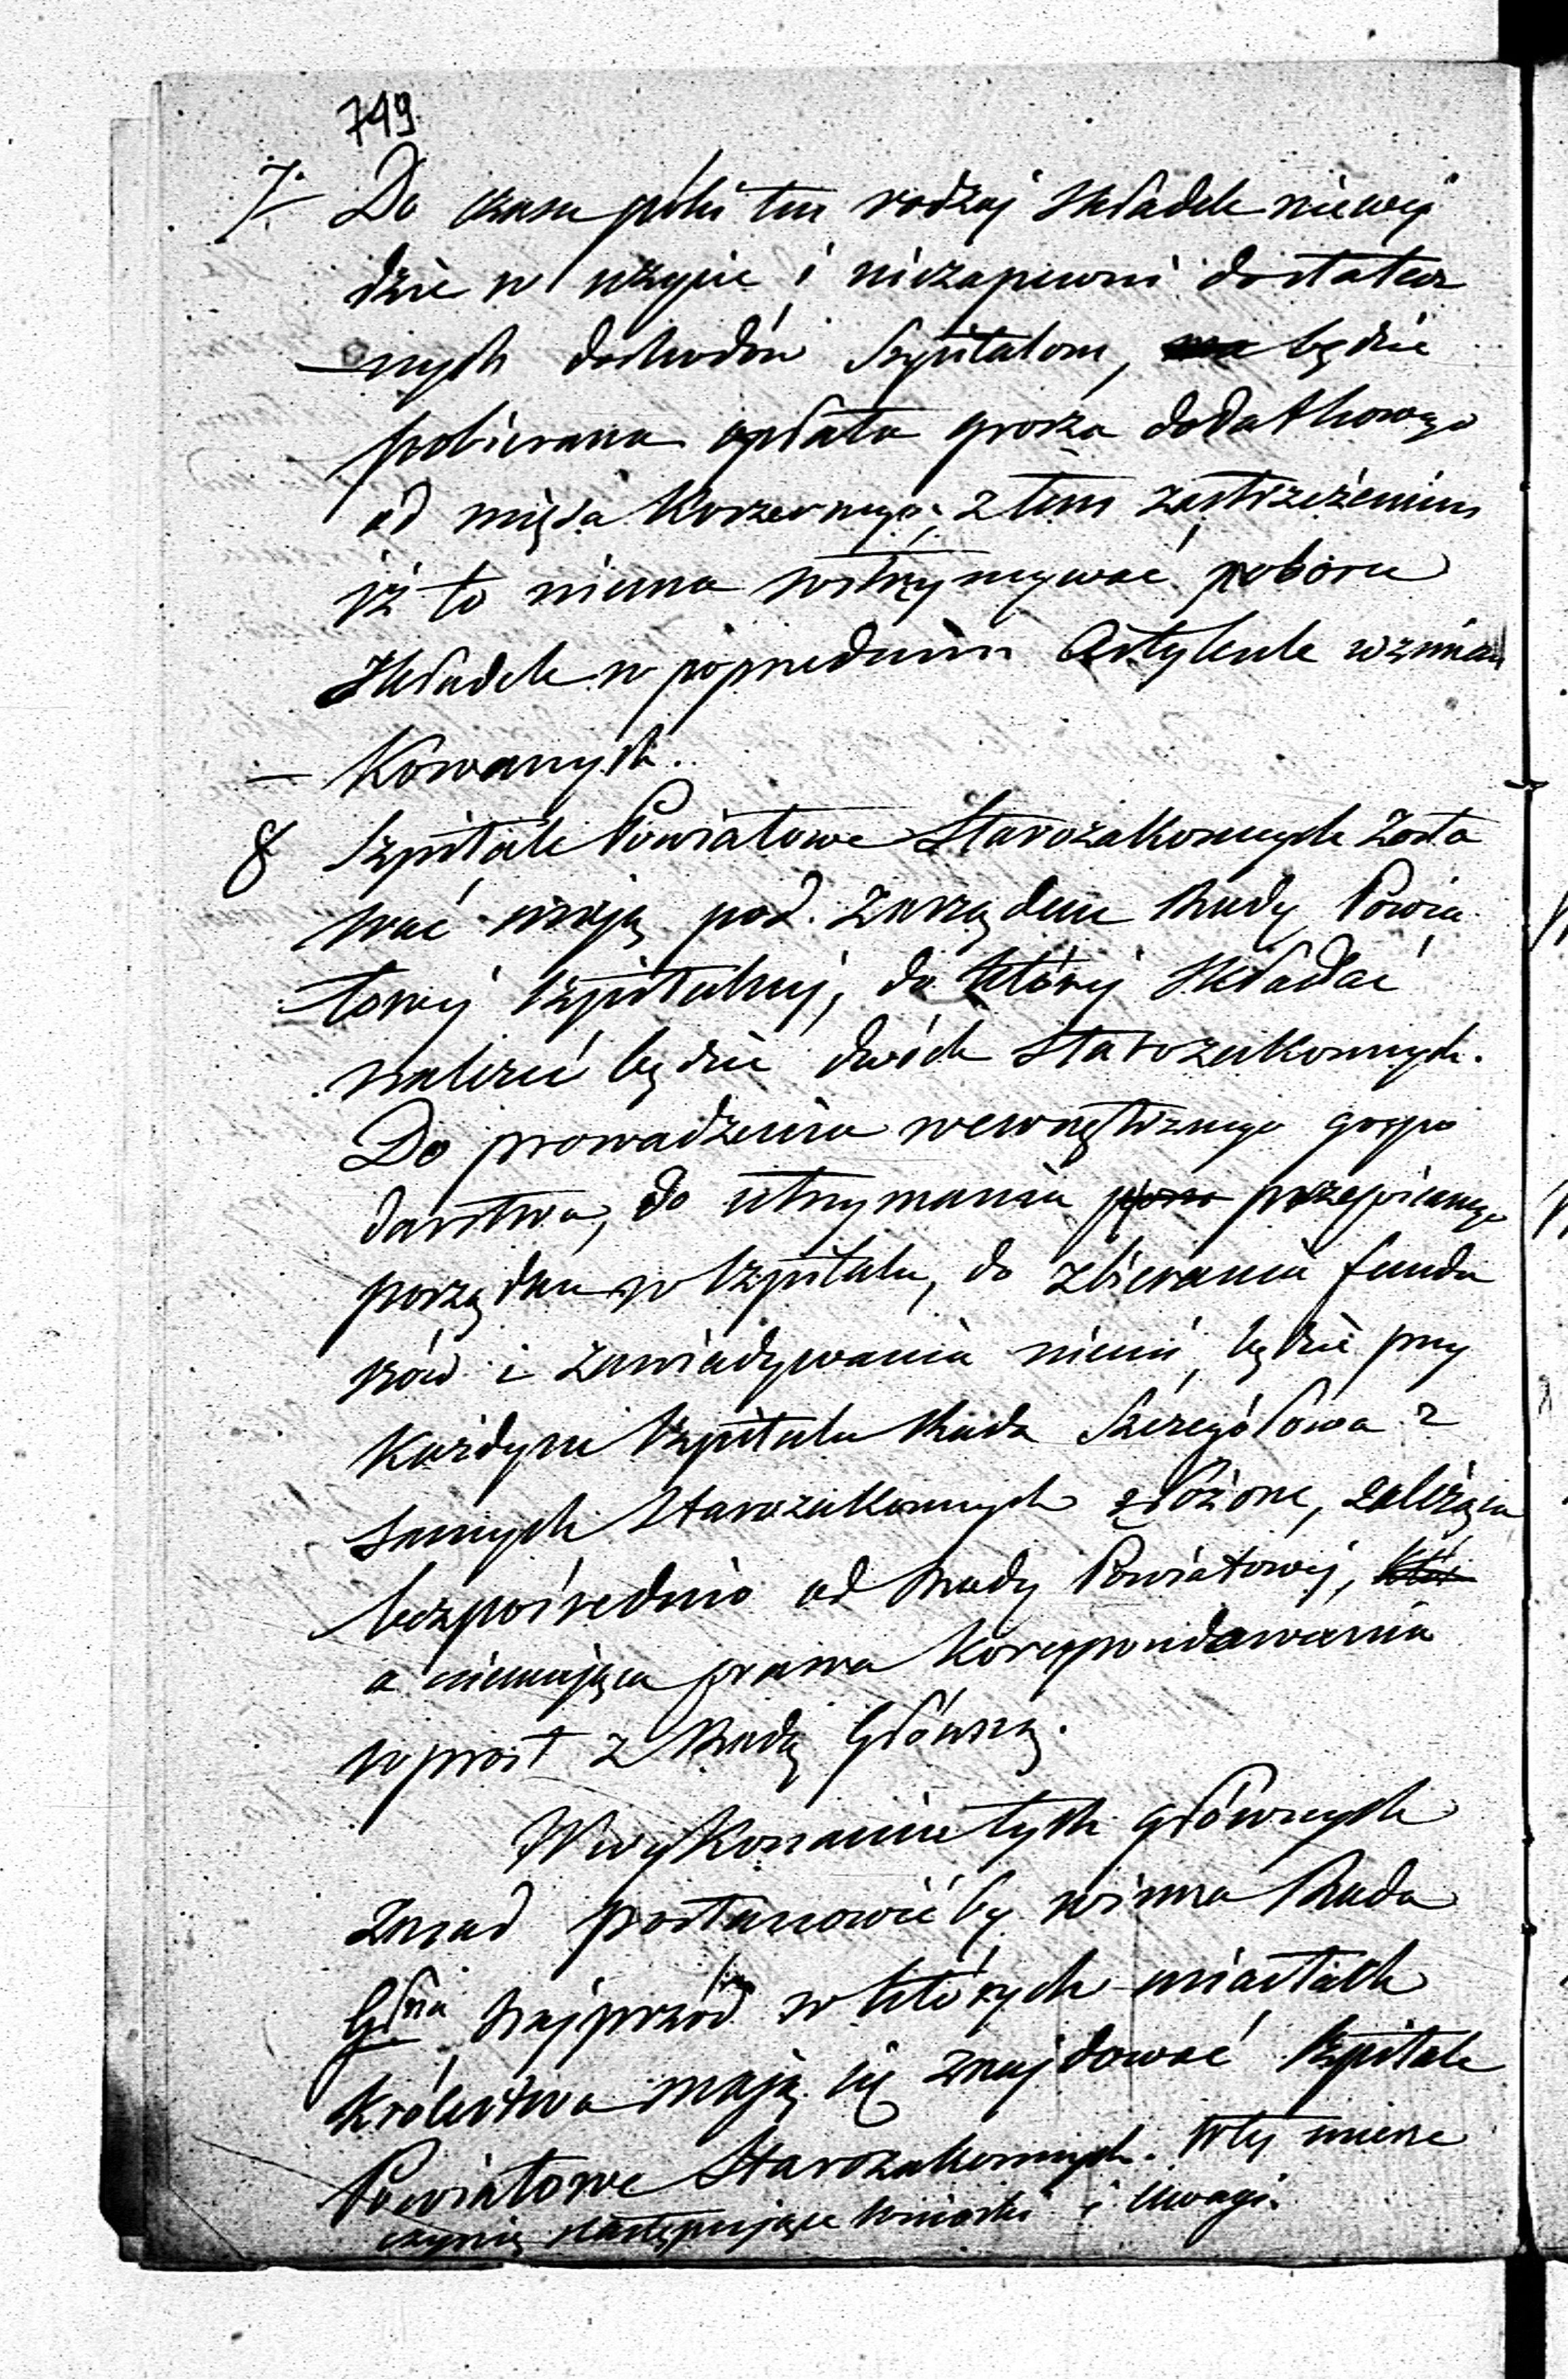 749.
7. Do czasu póki ten rodzaj składek niewej
dzie w użycie i niezapewni dostatecz
nych dochodów Szpitalom, będzie
pobierana opłata grosza dodatkowego
od mięsa koszernego; z tem zastrzeżeniem
iż to niema wstrzymywać poboru
składek w poprzednim Artykule wzmian
kowanych.
8 Szpitale Powiatowe Starozakonnych zosta
wać mają pod Zarządem Rady Powia
towej szpitalnej, do której składać
należeć będzie dwóch Starozakonnych.
Do prowadzenia wewnętrznego gospo
darstwa, do utrzymania przepisanego
porządku w Szpitalu, do zbierania fundu
szów i zawiadywania niemi, będzie przy
każdym Szpitalu Rada Szczegółowa z
samych Starozakonnych złożona, zależąca
bezpośrednio od Rady Powiatowej,
a niemająca prawa korespondowania
wprost z Radą Główną.
W wykonaniu tych głównych
zasad postanowić by winna Rada
Głna najprzód w których miastach
Królestwa mają się znajdować Szpitale
Powiatowe Starozakonnych. W tej mierze
czynię następujące wnioski i uwagi.